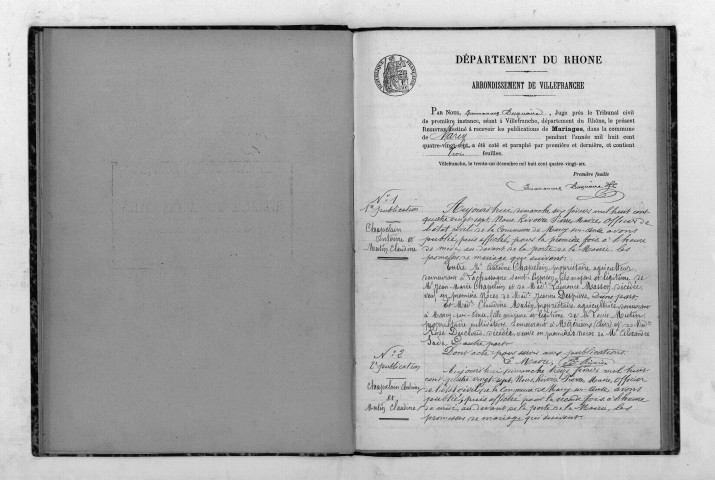 DÉPARTEMENT DU RHONE
ARRONDISSEMENT DE VILLEFRANCHE
PAR NOUS, Duquaire, Juge près le Tribunal civil
de première instance, séant à Villefranche, département du Rhône, le présent
REGISTRE destiné à recevoir les publications de Mariages, dans la commune
de Marcy pendant l'année mil huit cent
quatre-vingt sept a été coté et paraphé par première et dernière, et contient
trois feuilles.
Villefranche, le trente-un décembre mil huit cent quatre-vingt-six.
Première feuille
Duquaire
N° 1
1re publication
Chapelain
Antoine et
Mutin Claudine
Aujourd'hui dimanche six février mil huit cent
quatre vingt sept Nous Rivoire Pierre Maire officier de
l'état civil de la Commune de Marcy sur Anse avons
publié, puis affiché pour la première fois à l'heure
de midi au devant de la porte de la Mairie les
promesses de mariage qui suivent.
Entre Mr Antoine Chapelain, propriétaire agriculteur
demeurant à fils majeur et légitime de
Mr Jean Marie Chapelain et de Mad. Laurence Masson décédée
veuf en première Noces de Mad. Jeanne d'une part
Et Mad. Claudine Mutin, propriétaire agriculteur, demeurant
à Marcy sur Anse, fille majeure et légitime de Louis Mutin
propriétaire demeurant à et de Mad.
Rose décédée, veuve en premières noces de Mr Alexandre
d'autre part
Dont acte pour servir aux publications.
Le Maire, P. Rivoire
N° 2
2e publication
Chapelain Antoine
et
Mutin Claudine
Aujourd'hui dimanche treize février mil huit
cent quatre vingt sept, Nous Rivoire Pierre Maire, officier
de l'état civil de la Commune de Marcy sur Anse avons
publié, puis affiché pour la seconde fois à l'heure
de midi, au devant de la porte de la Mairie, les
promesses de mariage qui suivent.